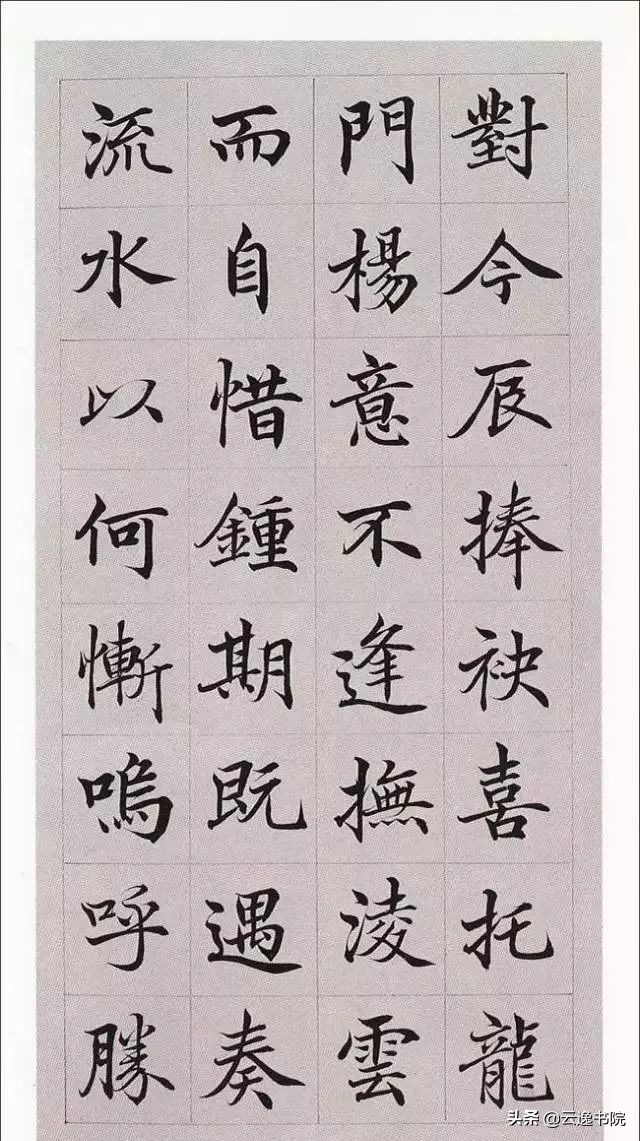 對今辰捧袂喜托龍
門楊意不逢撫淩雲
而自惜鍾期既遇奏
流水以何慚嗚呼勝
头条 @云逸书院